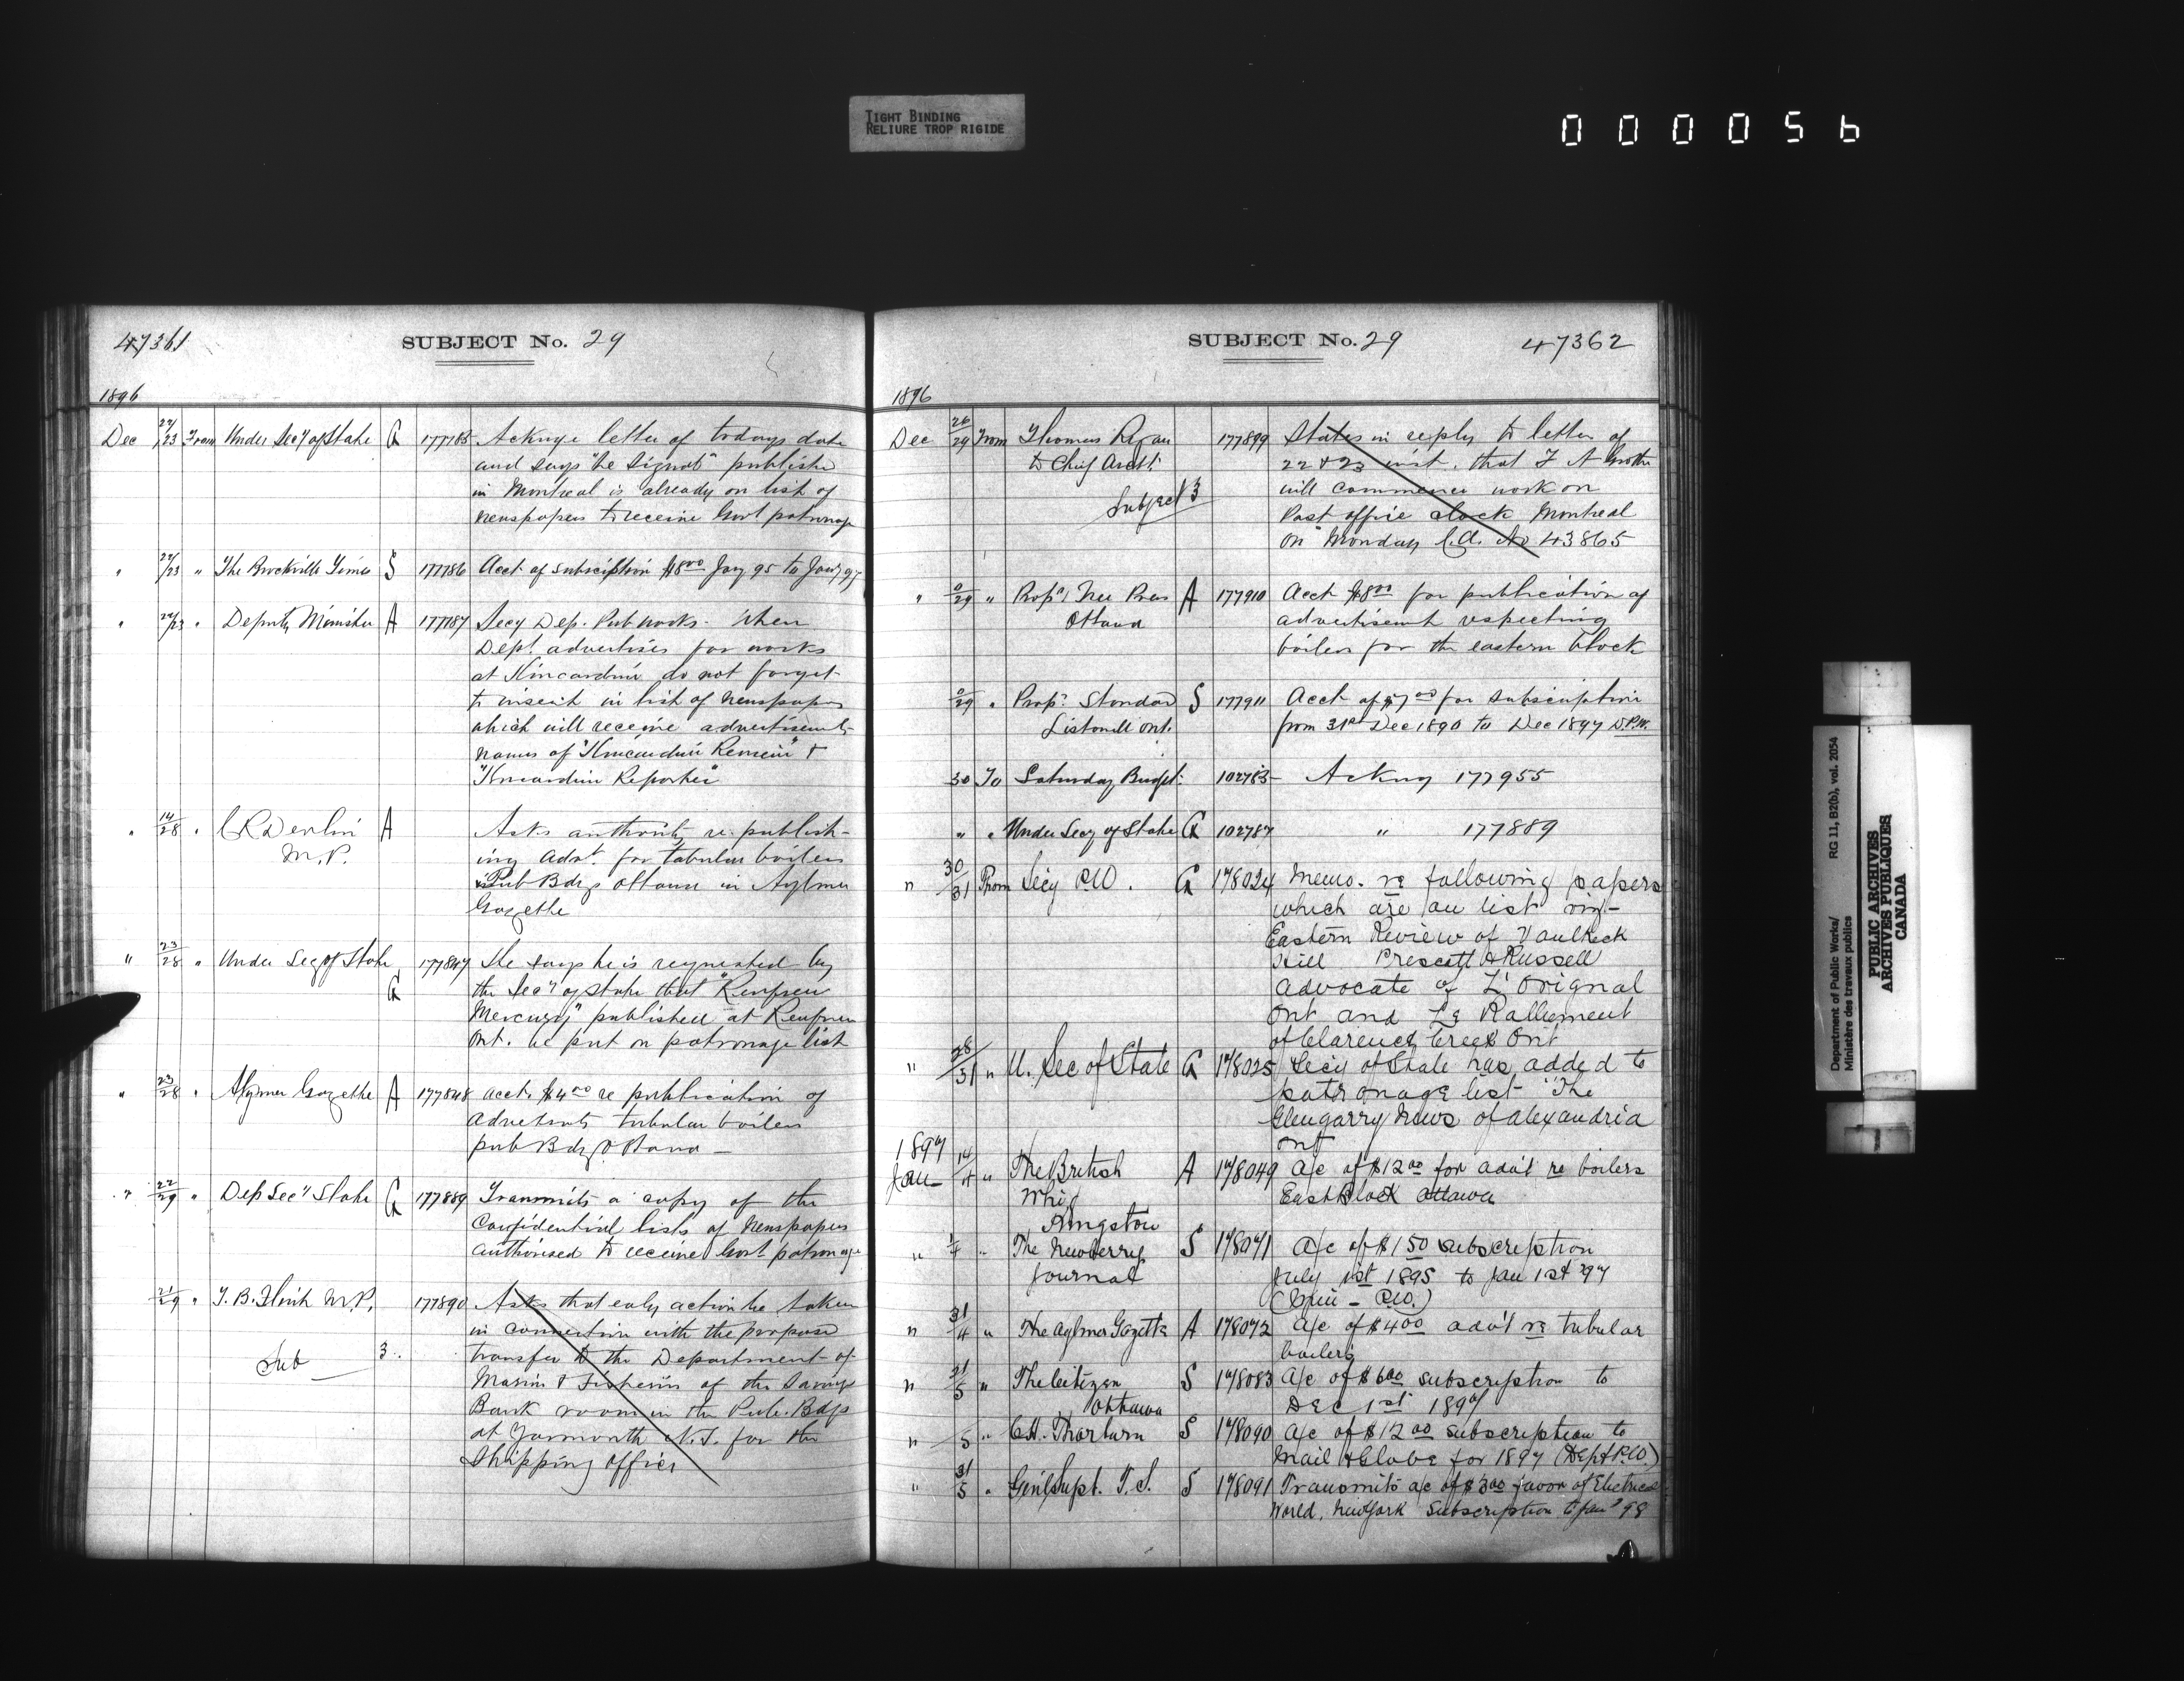 TIGHT BINDING
RELIURE TROP RIGIDE
000056
47361
SUBJECT No. 29
1896
Dec 22/23 From Under Secy of State G 177785 Acknge letter of todays date
and says "he Signal" publishe
in Montreal is already on list of
newspapers to receive Govt patronage
" 22/23 " The Brockville Times S 177786 Acct of subscription $8.00 Jany 95 to Jany 97
" 22/23 " Deputy Minister A 177787 Secy Dep. Pub works. When
Dept. advertises for works
at Kincardine do not forget
to insert in list of newspapers
which will receive advertisements
names of "Kincardine Review" &
"Kincardine Reporter"
" 14/28 " C R Devlin A Asks authority re publish-
M.P. ing Advt. for tubular boilers
Pub Bdgs Ottawa in Aylmer
Gazette
" 23/28 " Under Secy of State 177847 He says he is requested by
G the Secy of State that "Renfrew
Mercury" published at Renfrew
Ont. be put on patronage list
" 23/28 " Aylmer Gazette A 177848 acct. $4.00 re publication of
Advetmts tubular boilers
pub Bdgs Ottawa —
" 22/29 " Dep Secy State G 177889 Transmits a copy of the
Confidential lists of newspapers
authorised to receive Govt patronage
21/29 " T. B. Flint M.P. 177890 Asks that early action be taken
in connection with the propose
Sub 3. transfer to the Department of
Marine & Fisheries of the Savings
Bank room in the Pub. Bdgs
at Yarmouth N.S. for the
Shipping Office
SUBJECT No. 29
47362
1896
Dec 26/29 From Thomas Ryan 177899 States in reply to letter of
to Chief Archt. 22 & 23 inst. that F A
Subject 3 will commence work on
Post office clock Montreal
on Monday C.A. No 43865
" 0/29 " Propr. Free Press A 177910 Acct $8.00 for publication of
Ottawa advertisemt respecting
boilers for the eastern block
0/29 " Propr. Standard S 177911 Acct of $7.00 for subscription
Listowell Ont. from 31st Dec 1890 to Dec 1897 D.P.W.
30 To Saturday Budget. 102783 Ackny 177955
" " Under Secy of State G 102787 " 177889
" 30/31 From Secy P.W. G 178024 Memo. re following papers
which are on list viz-
Eastern Review of Vankleek
Hill Prescott & Russell
advocate of L'Orignal
Ont and Le Ralliement
of Clarence Creek Ont
" 28/31 " U. Sec of State G 178025 Secy of State has added to
patronage list "The
Glengarry News of alexandria
Ont
1897
Jan 14/4 " The British A 178049 a/c of $12.00 for adv't re boilers
Whig East Block Ottawa
Kingston
" 1/4 " The Newberry S 178071 a/c of $1.50 subscription
Journal July 1st 1895 to Jan 1st 97
" 31/4 " The Aylmer Gazette A 178072 a/c of $4.00 adv't re tubular
boilers
" 31/5 " The Citizen S 178083 a/c of $6.00 subscription to
Ottawa Dec 1st 1897
" /5 " C.H. Thorburn S 178090 a/c of $12.00 subscription to
Mail & Globe for 1897 (Dept P.W.)
" 31/5 " Gen'l Supt. T.S. S 178091 Transmits a/c of $3.00 favor of Electrical
World, New York Subscription to Jany 98
Department of Public Works/
Ministère des travaux publics
RG 11, B2(b), vol. 2054
PUBLIC ARCHIVES
ARCHIVES PUBLIQUES
CANADA